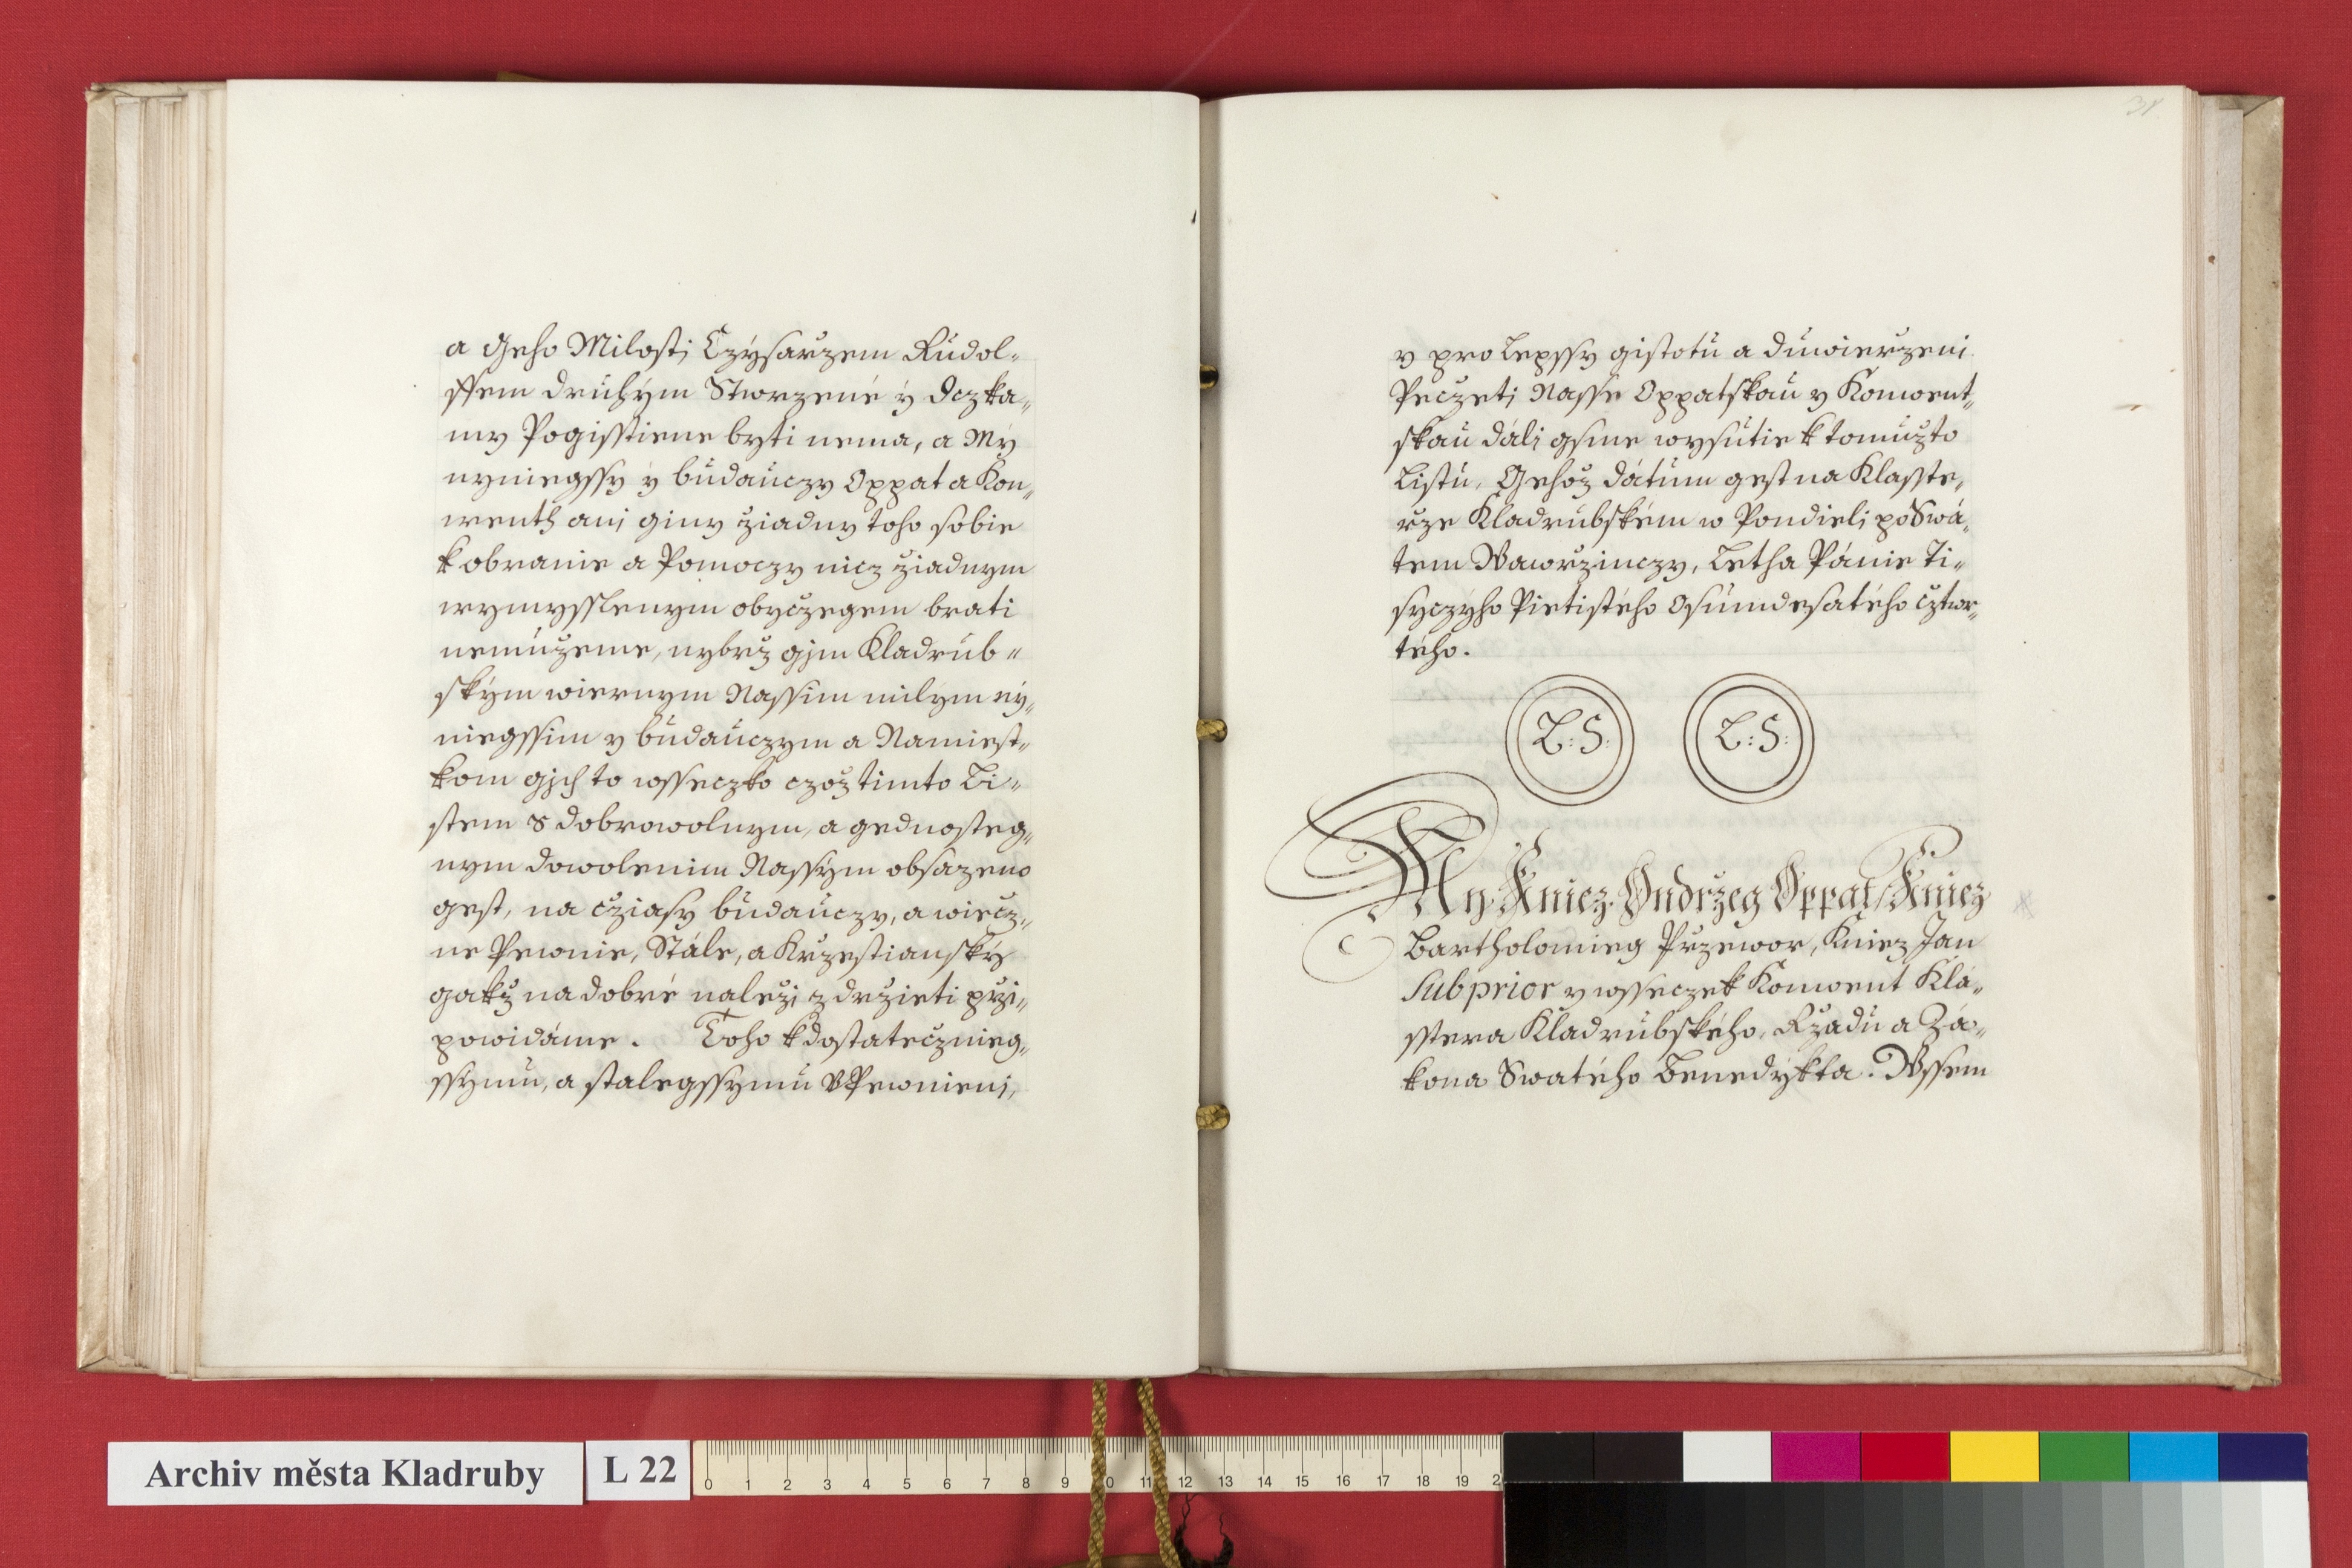 a Geho Milosti Czýsařzem Rudol-
ffem druhým Stwrzené ý dczka-
my Pogisstiene byti nema, a Mý
nyniegssy ý budauczy Oppat a Kon-
wenth ani giny žiadny toho sobie
k obranie a Pomoczy nicz žiadnym
wymysslenym obyczegem brati
nemužeme, nybrž gjm Kladrub-
ským wiernym Nassim milým ný-
niegssim y budauczym a Namiest-
kom gjch to wsseczko czož timto Li-
stem s dobrowolnym, a gednosteg-
nym dowolenim Nassým obsazeno
gest, na cziasy budauczy, a wiecz-
ne Pewnie, Stále, a Krzestiansky
gakž na dobré naleži zdržieti przi-
powidáme. Toho k dostatecznieg-
ssymu, a stalegssymu VPewnieni,
31
y pro lepssy gistotu a duwierzeni
Peczeti Nasse Oppatskau y Konwent-
skau dáli gsme wysutie k tomužto
Listu, Gehož dátum gest na Klasste-
rze Kladrubském w Pondieli po Swá-
tem Wawrzinczy, Letha Pánie Ti-
syczýho Pietistého Osumdesatého cztwr-
tého.
L: S: L: S:
My Kniez Ondrzeg Oppat, Kniez
Bartholomieg Przewor, Kniez Jan
Subprior y wsseczek Konwent Klá-
sstera Kladrubského, Rzadu a Zá-
kona Swatého Benedýkta. Wssem
Archiv města Kladruby L 22
0 1 2 3 4 5 6 7 8 9 10 11 12 13 14 15 16 17 18 19 2